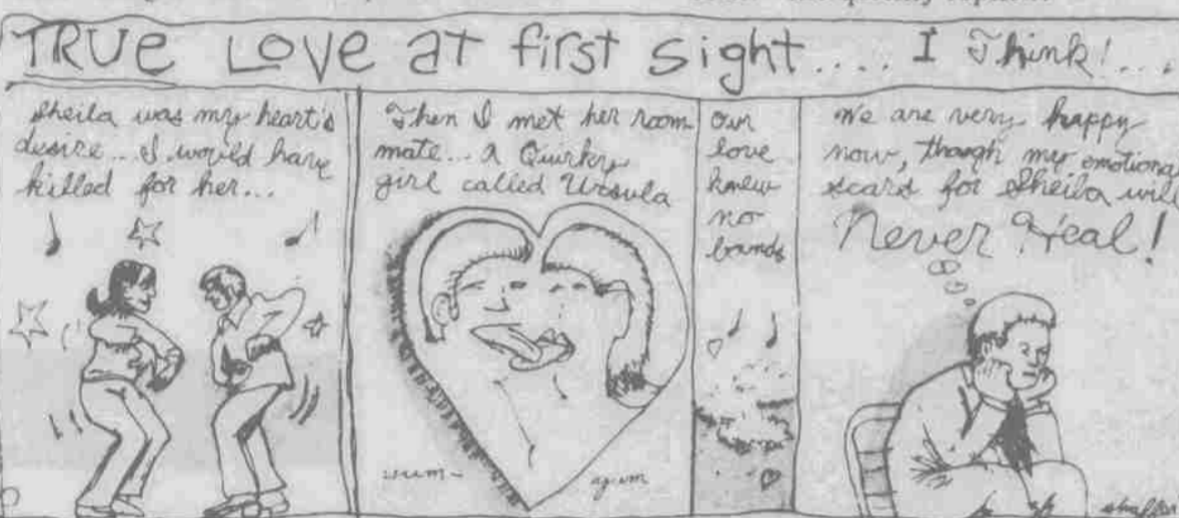 TRUE LOVE at first sight.... I Think!...
Sheila was my heart's
desire... I would have
killed for her...
Then I met her room
mate... a Quirky
girl called Ursula
our
love
knew
no
bands
We are very happy
now, though my emotional
scars for Sheila will
Never Heal!